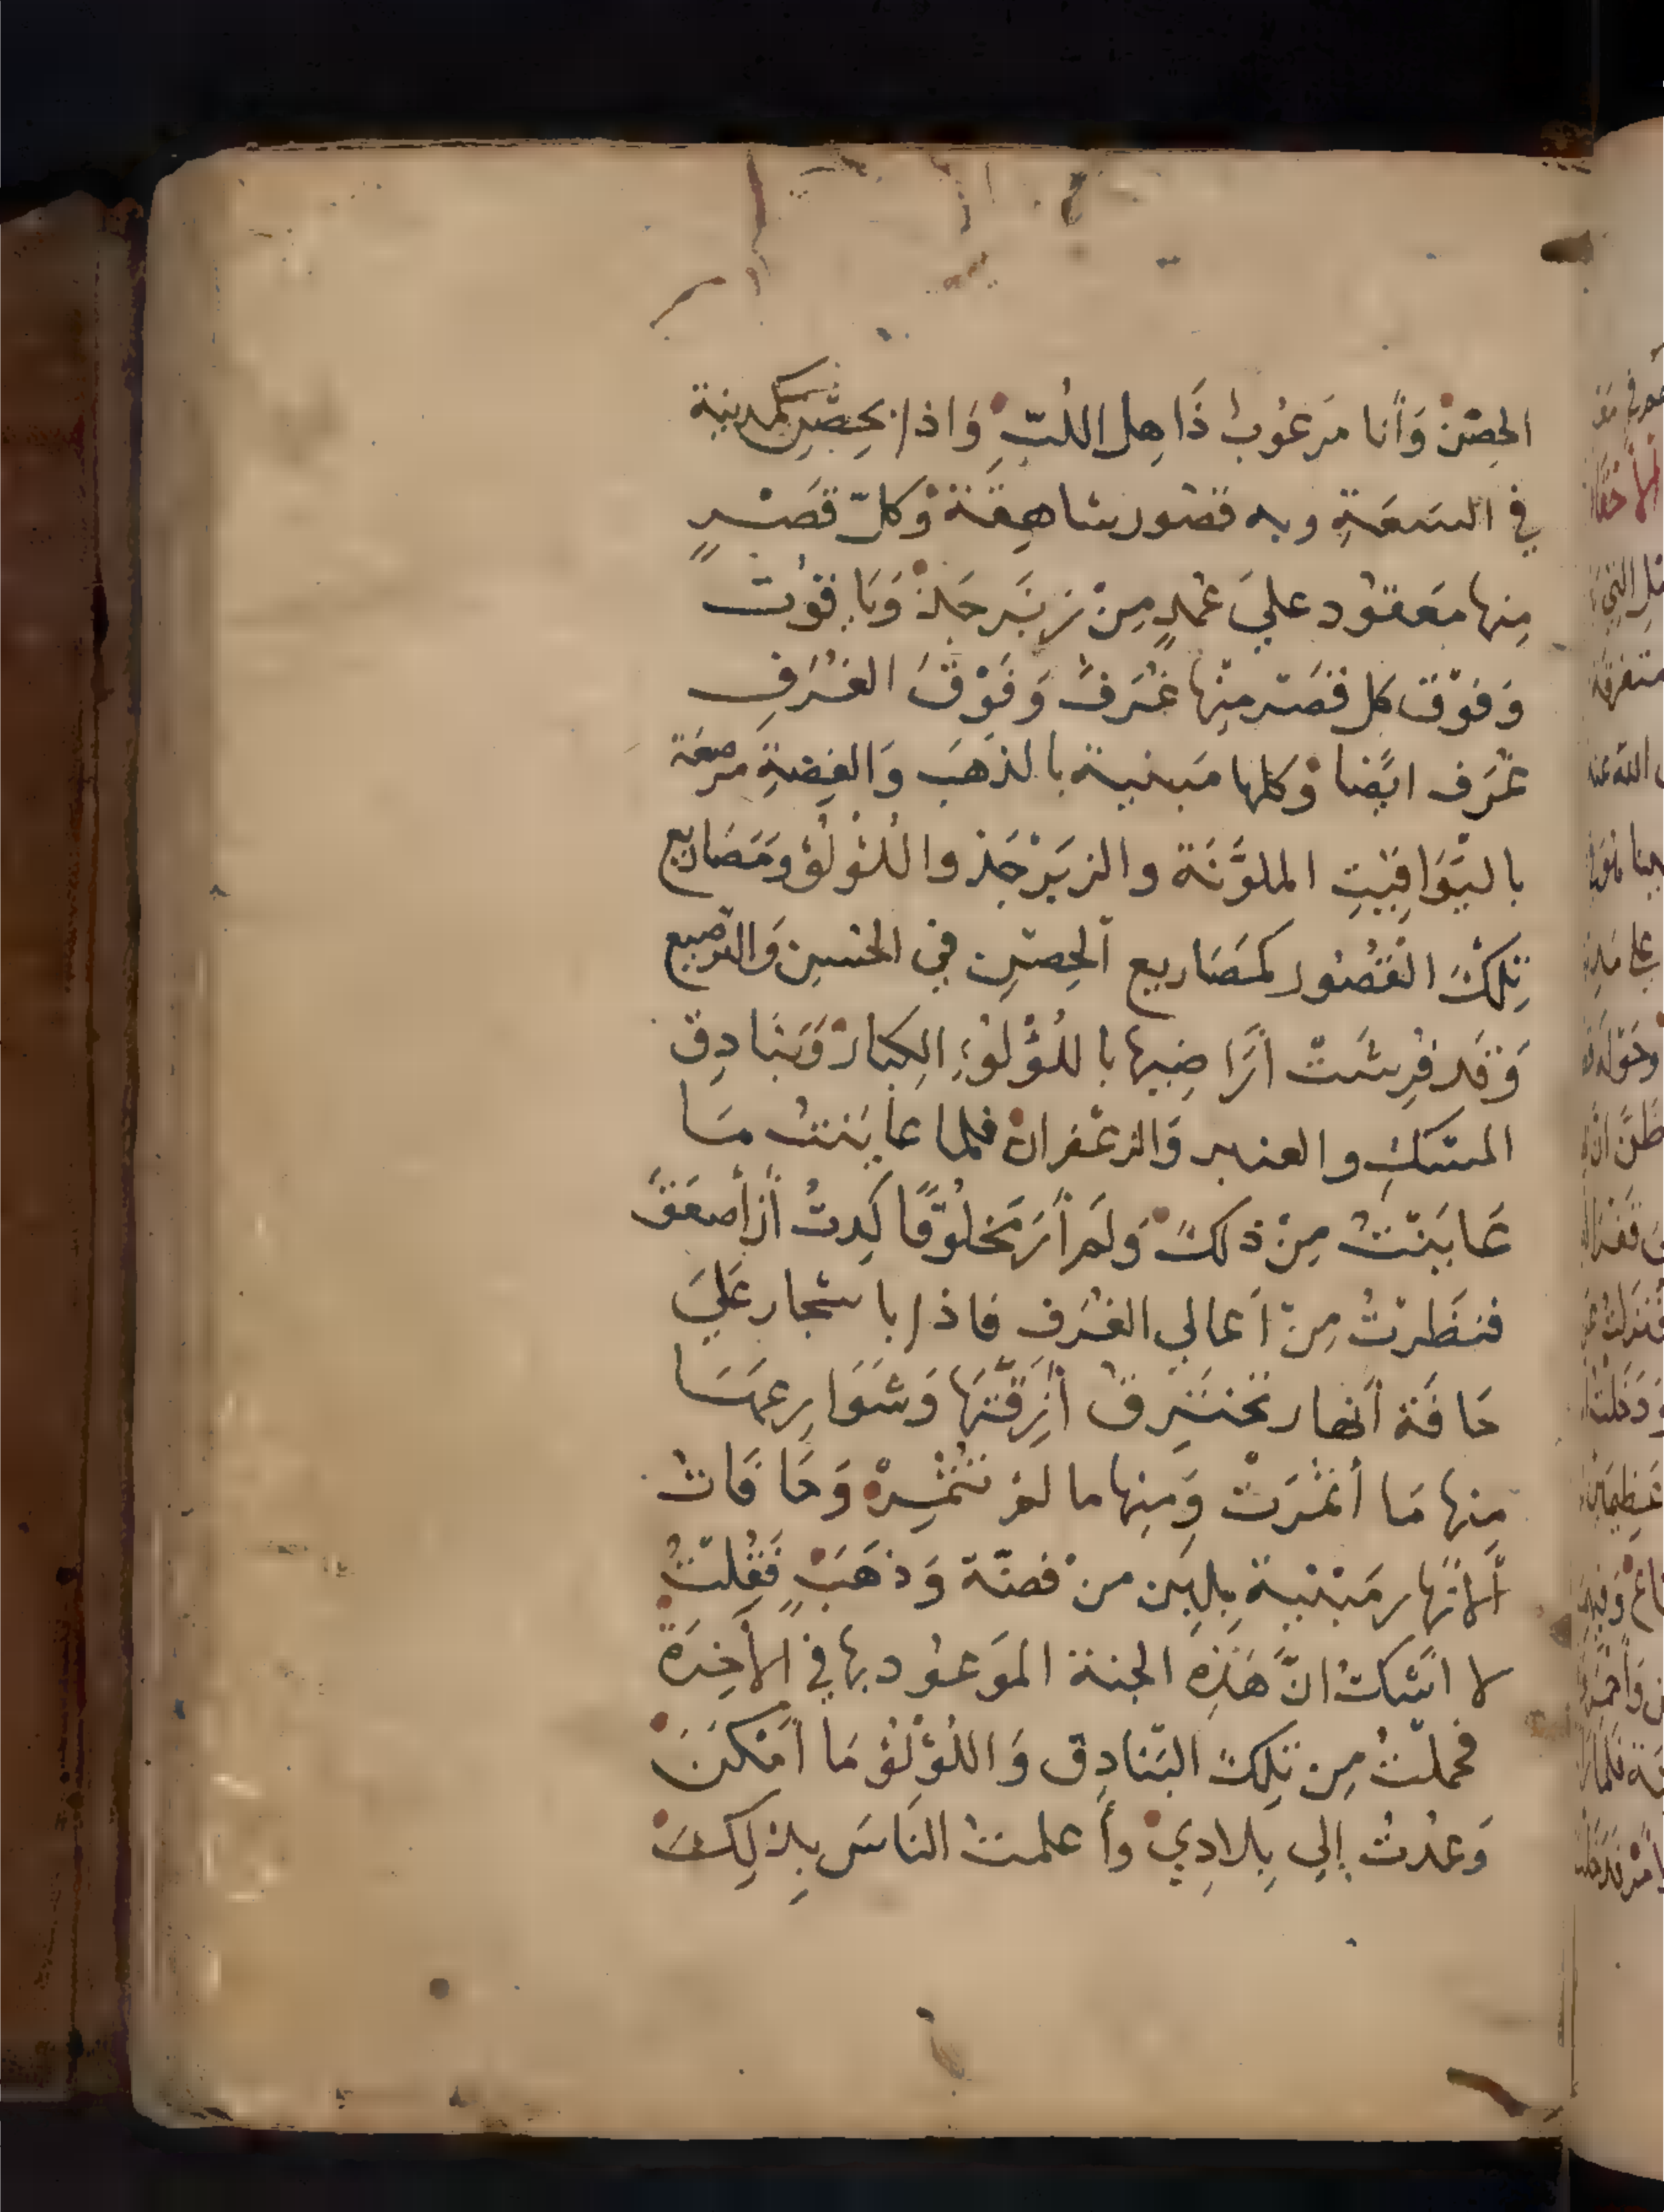 الحِصْن وَأنا مَرعُوبُ ذَاهِل اللُبِّ وَاذا بحِصْنٍ كمدينة
في السَعَةِ وبه قصُور شاهِقة وَكلّ قَصْرٍ
مِنها مَعقُود عليَ عُمدٍ مِنْ زبَرجَدْ وَيَاقوُت
وَفوْق كل قصَر مِنْها غُرَفُ وَفَوْقَ الغُرَفِ
غُرَف ايضا وَكلها مَبنية بالذهَبِ وَالفِضةِ مرصعَة
باليَوَاقِيْتِ الملوَّنَة والزبَرْجَد واللُؤلُؤ وَمَصَاريع
تِلكَ القُصُور كمَصَاريع الحِصْنِ في الحسْنِ وَالترصيع
وَقد فرِشَتْ أرَاضِيها باللُؤْلوُءِ الِكبَارْ وَبَنَادِق
المسْكِ والعنبر وَالزعْفرانْ فلما عايَنتُ مَا
عَايَنْتُ مِنْ ذلكَ وَلَم أرَ مَخلوُقًا كَدِتُ أن أصعَقَ
فنظَرتُ مِنْ أعالي الغُرَفِ فاذا باشجار عَليَ
حَافَة أنهار تخترِق أزِقَّتَهَا وَشَوَارِعهَا
مِنها مَا أثمَرَتْ وَمِنها ما لم تُثْمِرْ وَحَافَات
ألانَهار مَبْنية بِلبِن منْ فضّة وَذهَبٍ فَقُلتُ
لا اشكُ انَّ هَذِهِ الجنة الموَعوُد بها في الأخِرَة
فحملْتُ مِن تِلكَ البَنادِق وَاللُؤْلُؤ مَا أمَكنَ
وَعدْتُ إلي بِلادِي وأعلمتُ النَاسَ بِذلِكَ